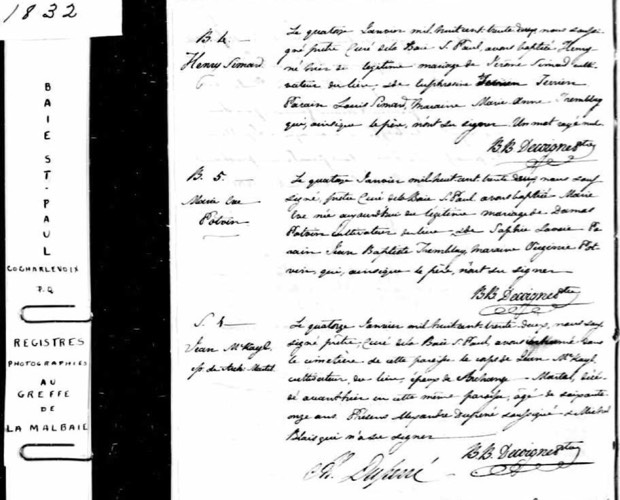 1832
BAIE ST-PAUL
CO CHARLEVOIX
P.Q
REGISTRES
PHOTOGRAPHIÉS
AU
GREFFE
DE
LA MALBAIE
B. 4
Henry Simard
Le quatorze Janvier mil huit cent trente deux, nous sous
signé prêtre Curé de la Baie S. Paul, avons baptisé Henry
né hier de légitime mariage de Simard culti
vateur du lieu, & de Euphrasine Terrien
Parain Louis Simard, Maraine Marie Anne Tremblay
qui, ainsi que le père, n'ont su signer Un mot rayé nul
B.B. Decoigne ptre
B. 5
Marie
Potvin
Le quatorze Janvier mil huit cent trente deux nous sous
signé, prêtre Curé de la Baie S. Paul avons baptisé Marie
née aujourd'hui du légitime mariage de Damas
Potvin cultivateur du lieu & de Sophie Lavoie Pa
rain Jean Baptiste Tremblay, maraine Pot
vin, qui, ainsi que le père, n'ont su signer
B.B. Decoigne ptre
S. 4
Jean McKayl
ép. de Arch. Martel
Le quatorze Janvier mil huit cent trente deux, nous sous
signé prêtre, Curé de la Baie S. Paul, avons inhumé dans
le cimetière de cette paroisse le corps de Jean McKayl
cultivateur, du lieu, époux de Archange Martel, décé
dé avant hier en cette même paroisse, âgé de soixante
onze ans Présens Alexandre Dufrené soussigné &
Blais qui n'a su signer
B.B. Decoigne ptre
Dufrené